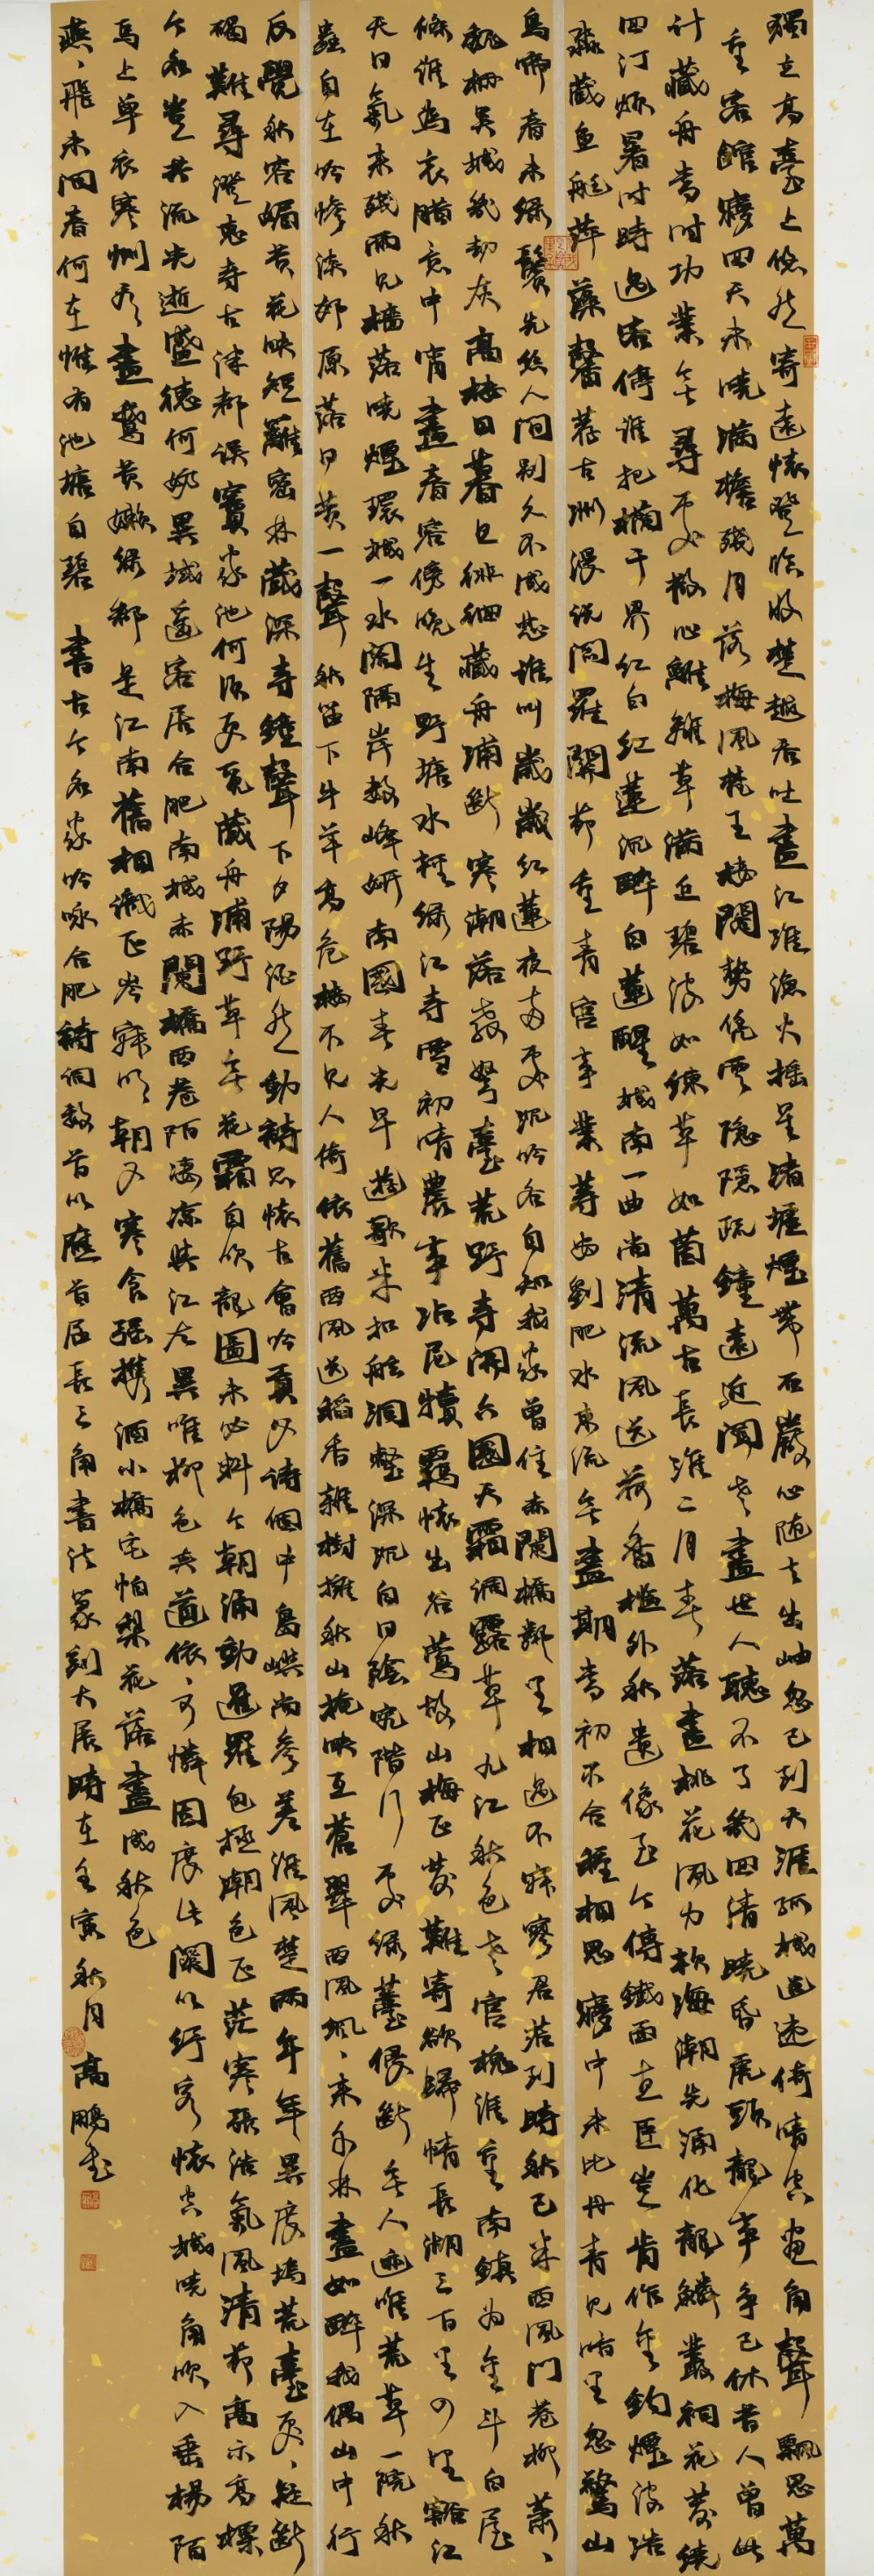 獨立高臺上悠然寄遠懷登臨收楚越吞吐盡江淮漁火搖星渚壚煙帶石巖心隨雲出岫忽已到天涯孤城迢遞倚晴空畫角聲飄思萬
重客館夢回天未曉滿樓殘月落梅風梵王樓閣勢凭雲隱隱疏鐘遠近聞老盡世人聽不了幾回清曉昏虎頭龍爭事已休昔人曾此
計藏舟當時功業無尋處離離草滿丘碧波如練草如茵萬古長淮二月春落盡桃花風力軟海潮先涌化龍鱗叢祠花發繞
回汀暑時過客停誰把欄干界紅白紅蓮沉醉白蓮醒城南一曲尚清流風送荷香檻外秋遺像至今傳鐵面直臣豈肯作金鉤煙波浩
淼藏魚艇萍藻馨香古洲漫說閻羅關節重青宮事業劉肥水東流無盡期當初不合種相思夢中未比丹青見暗里忽驚山
鳥啼春未綠鬢先絲人間別久不成悲誰叫歲歲紅蓮夜兩處沉吟各自知我家曾住赤闌橋鄰里相過不寂寥君若到時秋已半西風門巷柳蕭、
魏柵吳城幾劫灰高樓日暮且徘徊藏舟浦斷寒潮落教弩臺荒野寺開六國天霜凋露草九江秋色老官槐淮重南鎮為金斗白屋
條誰為哀臘意中宵盡春容傍晚生野塘水輕綠江寺雪初晴農事沾尼犢羈懷出谷鶯故山梅正發難寄欲歸情長湖三百里四望豁江
天日氣來殘雨凡檣落曉煙環城一水闊隔岸數峰妍南國春光早遊歌半扣舷洞壑深沉白日陰階行處綠偎斷無人跡唯荒草一院秋
蟲自在吟慘淡郊原落日黃一聲秋笛下牛羊高危樓不見人倚依舊西風送稻香雜樹擁秋山掩映互蒼翠西風颯、來千林盡如醉我偶山中行
反覺秋容媚黃花映短籬密林藏深寺鐘聲下夕陽泛然動禱思懷古會吟賈父詩個中島嶼尚參差淮風楚雨年年異廢塢荒臺處、疑斷
碣難尋澄惠寺古津都誤竇家池何須更覓藏舟浦野草無花霜自吹龍圖未必料今朝涌動暹羅包極潮色正茫寒張浩氣風清節高示高標
今和豈共流光逝盛德何妨異域遥客居合肥南城赤闌橋西巷陌淒涼與江左異唯柳色夾道依、可憐因度此闋以紓客懷空城曉角吹入垂楊陌
馬上單衣寒惻、看盡鵝黃嫩綠都是江南舊相識正岑寂明朝又寒食強攜酒小橋宅怕梨花落盡成秋色
燕、飛來問春何在惟有池塘自碧 書古今名家吟詠合肥詩詞數首以應首屆長三角書法篆刻大展時在壬寅秋月高鵬書